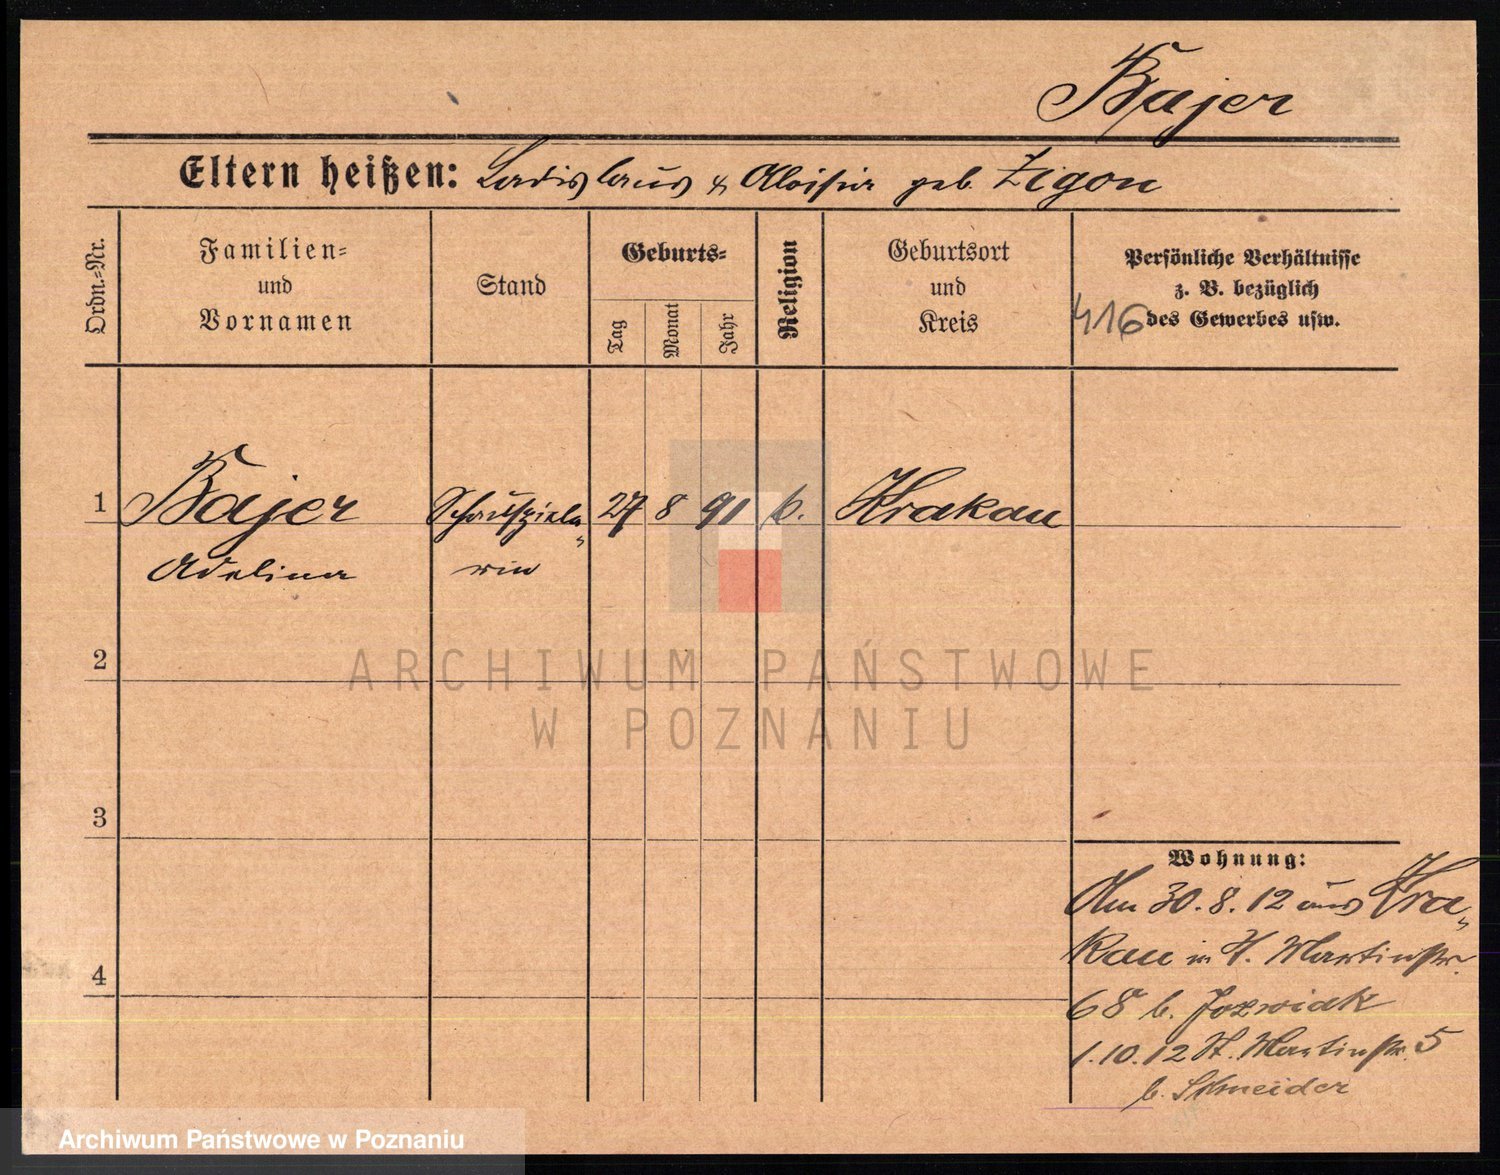 Bajer
Eltern heißen: Ladislaus & Aloisia geb. Zigon
Ordn.-Nr.
Familien-
und
Vornamen
Stand
Geburts-
Tag
Monat
Jahr
Religion
Geburtsort
und
Kreis
Persönliche Verhältnisse
z. B. bezüglich
416 des Gewerbes usw.
1 Bajer Schauspiele- 27 8 91 k. Krakau
Adelina rin
2
3
4
Wohnung:
Am 30.8.12 aus Kra-
kau in St. Martinstr.
68 b. Jozwiak
1.10.12 St. Martinstr. 5
b. Schneider
ARCHIWUM PAŃSTWOWE
W POZNANIU
Archiwum Państwowe w Poznaniu